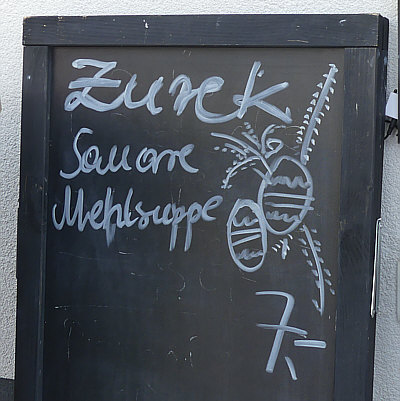 Zurek
Sauore
Mehlsuppe
7,-